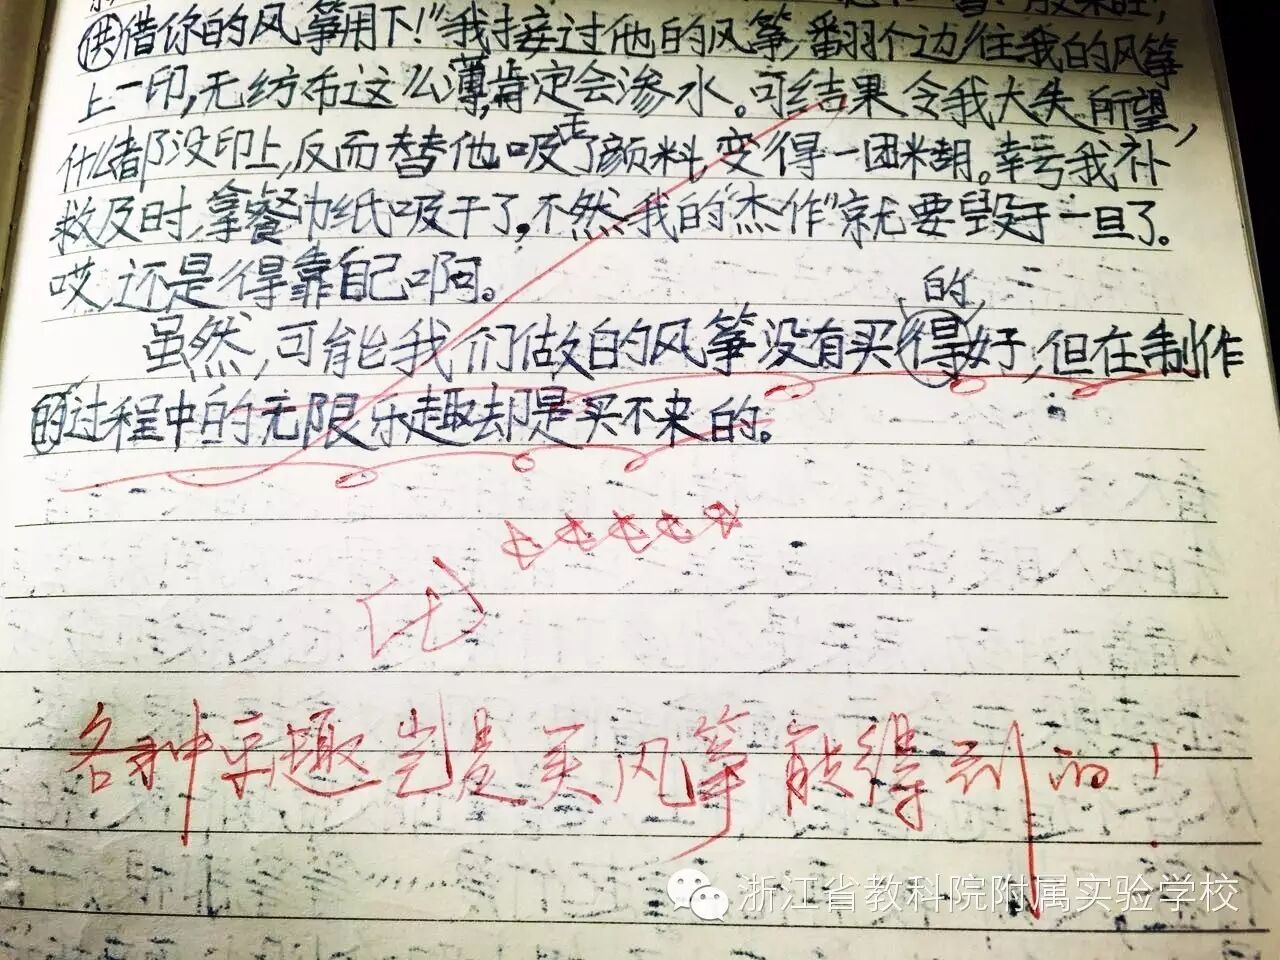 供借你的风筝用下!"我接过他的风筝,翻个边往我的风筝
上一印,无纺布这么薄,肯定会渗水。可结果令我大失所望,
什么都没印上,反而替他吸走了颜料,变得一团糊。幸亏我补
救及时,拿餐巾纸吸干了,不然我的"杰作"就要毁于一旦了。
哎,还是得靠自己啊。
的
虽然,可能我们做的风筝没有买得好,但在制作
的过程中的无限乐趣却是买不来的。
各种乐趣岂是买风筝能得到的!
浙江省教科院附属实验学校